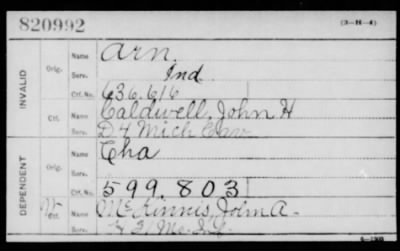 820992
(3-H-4)
INVALID
Orig.
Name Arn.
Serv. Ind.
Ctf. No. 636.616
Ctf.
Name Caldwell, John H
Serv. D 4 Mich Cav
DEPENDENT
Orig.
Name Cha
Serv.
Ctf. No. 599.803
Ctf.
Name McKinnis, John A.
Serv. 31 Me. Inf.